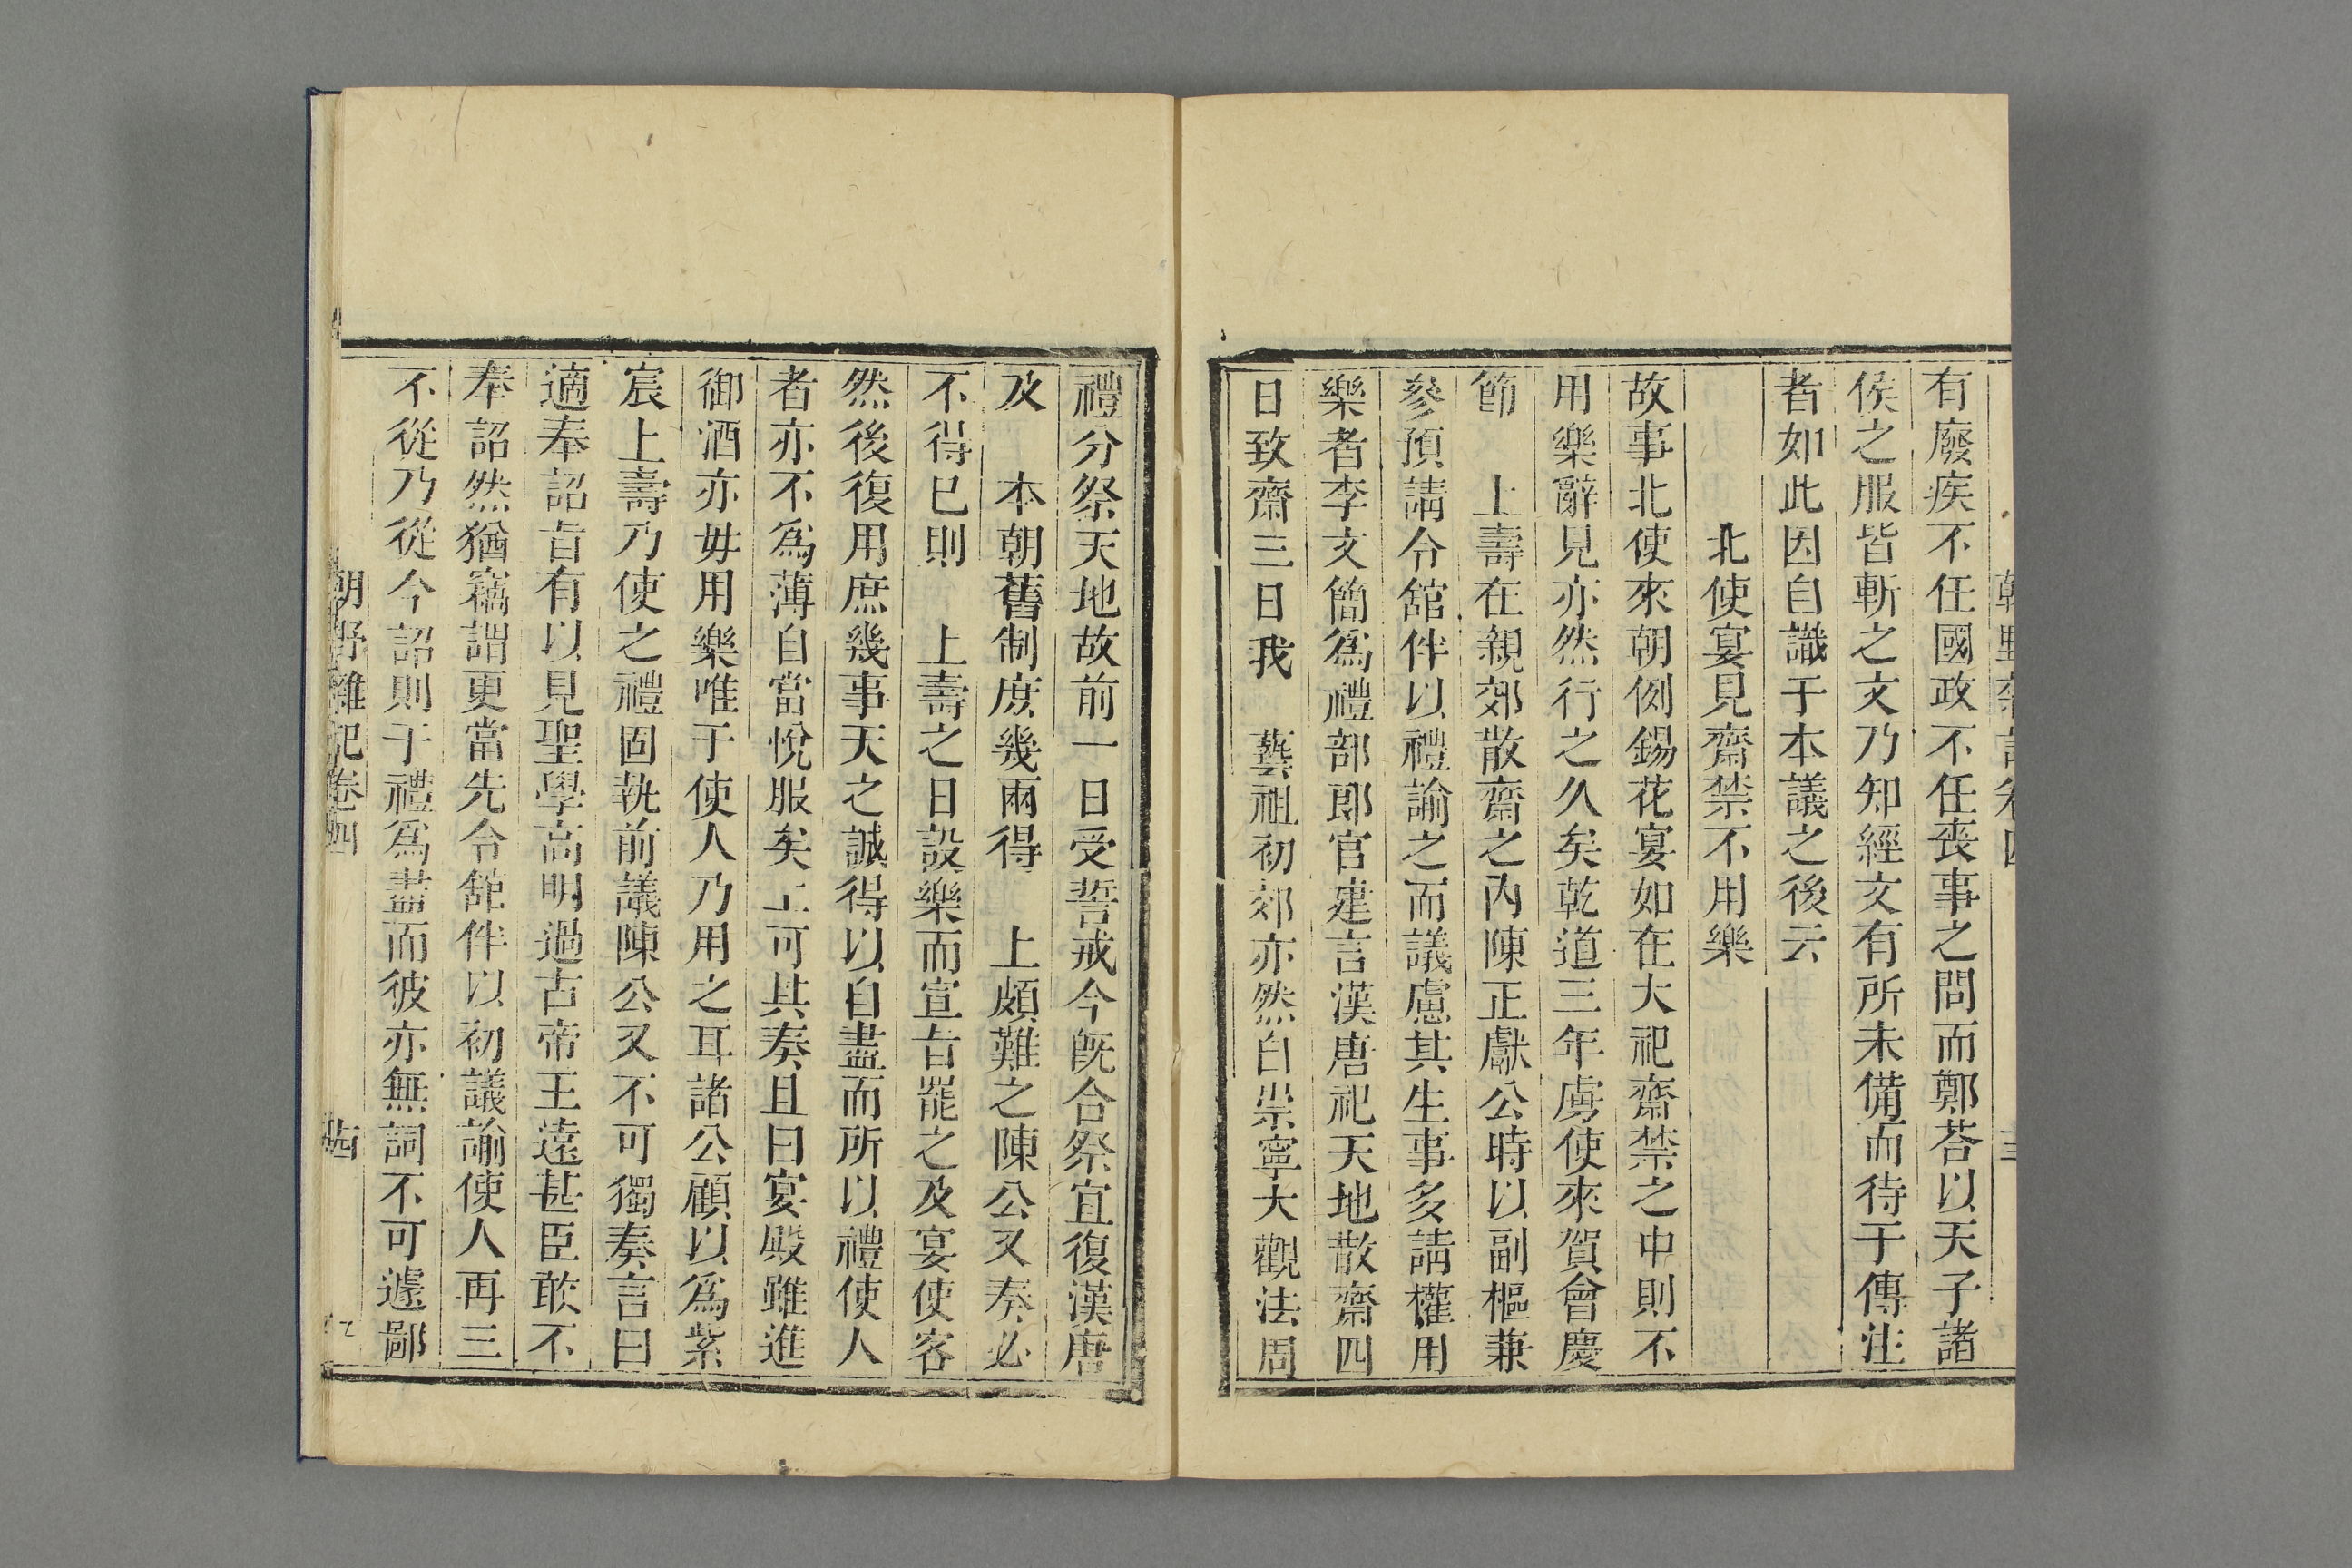 有廢疾不任國政不任喪事之問而鄭荅以天子諸
侯之服皆斬之文乃知經文有所未備而待于傳注
者如此因自識于本議之後云
北使宴見齋禁不用樂
故事北使來朝例錫花宴如在大祀齋禁之中則不
用樂辭見亦然行之久矣乾道三年虜使來賀會慶
節 上壽在親郊散齋之內陳正獻公時以副樞兼
參預請令舘伴以禮諭之而議慮其生事多請權用
樂者李文簡爲禮部郞官建言漢唐祀天地散齋四
日致齋三日我 藝祖初郊亦然自崇寧大觀法周
禮分祭天地故前一日受誓戒今旣合祭宜復漢唐
及 本朝舊制庶幾兩得 上頗難之陳公又奏必
不得已則 上壽之日設樂而宣旨罷之及宴使客
然後復用庶幾事天之誠得以自盡而所以禮使人
者亦不爲薄自當悅服矣上可其奏且曰宴殿雖進
御酒亦毋用樂唯于使人乃用之耳諸公顧以爲紫
宸上壽乃使之禮固執前議陳公又不可獨奏言曰
適奉詔旨有以見聖學高明過古帝王遠甚臣敢不
奉詔然猶竊謂更當先令舘伴以初議諭使人再三
不從乃從今詔則于禮爲盡而彼亦無詞不可遽鄙
朝野雜記卷四